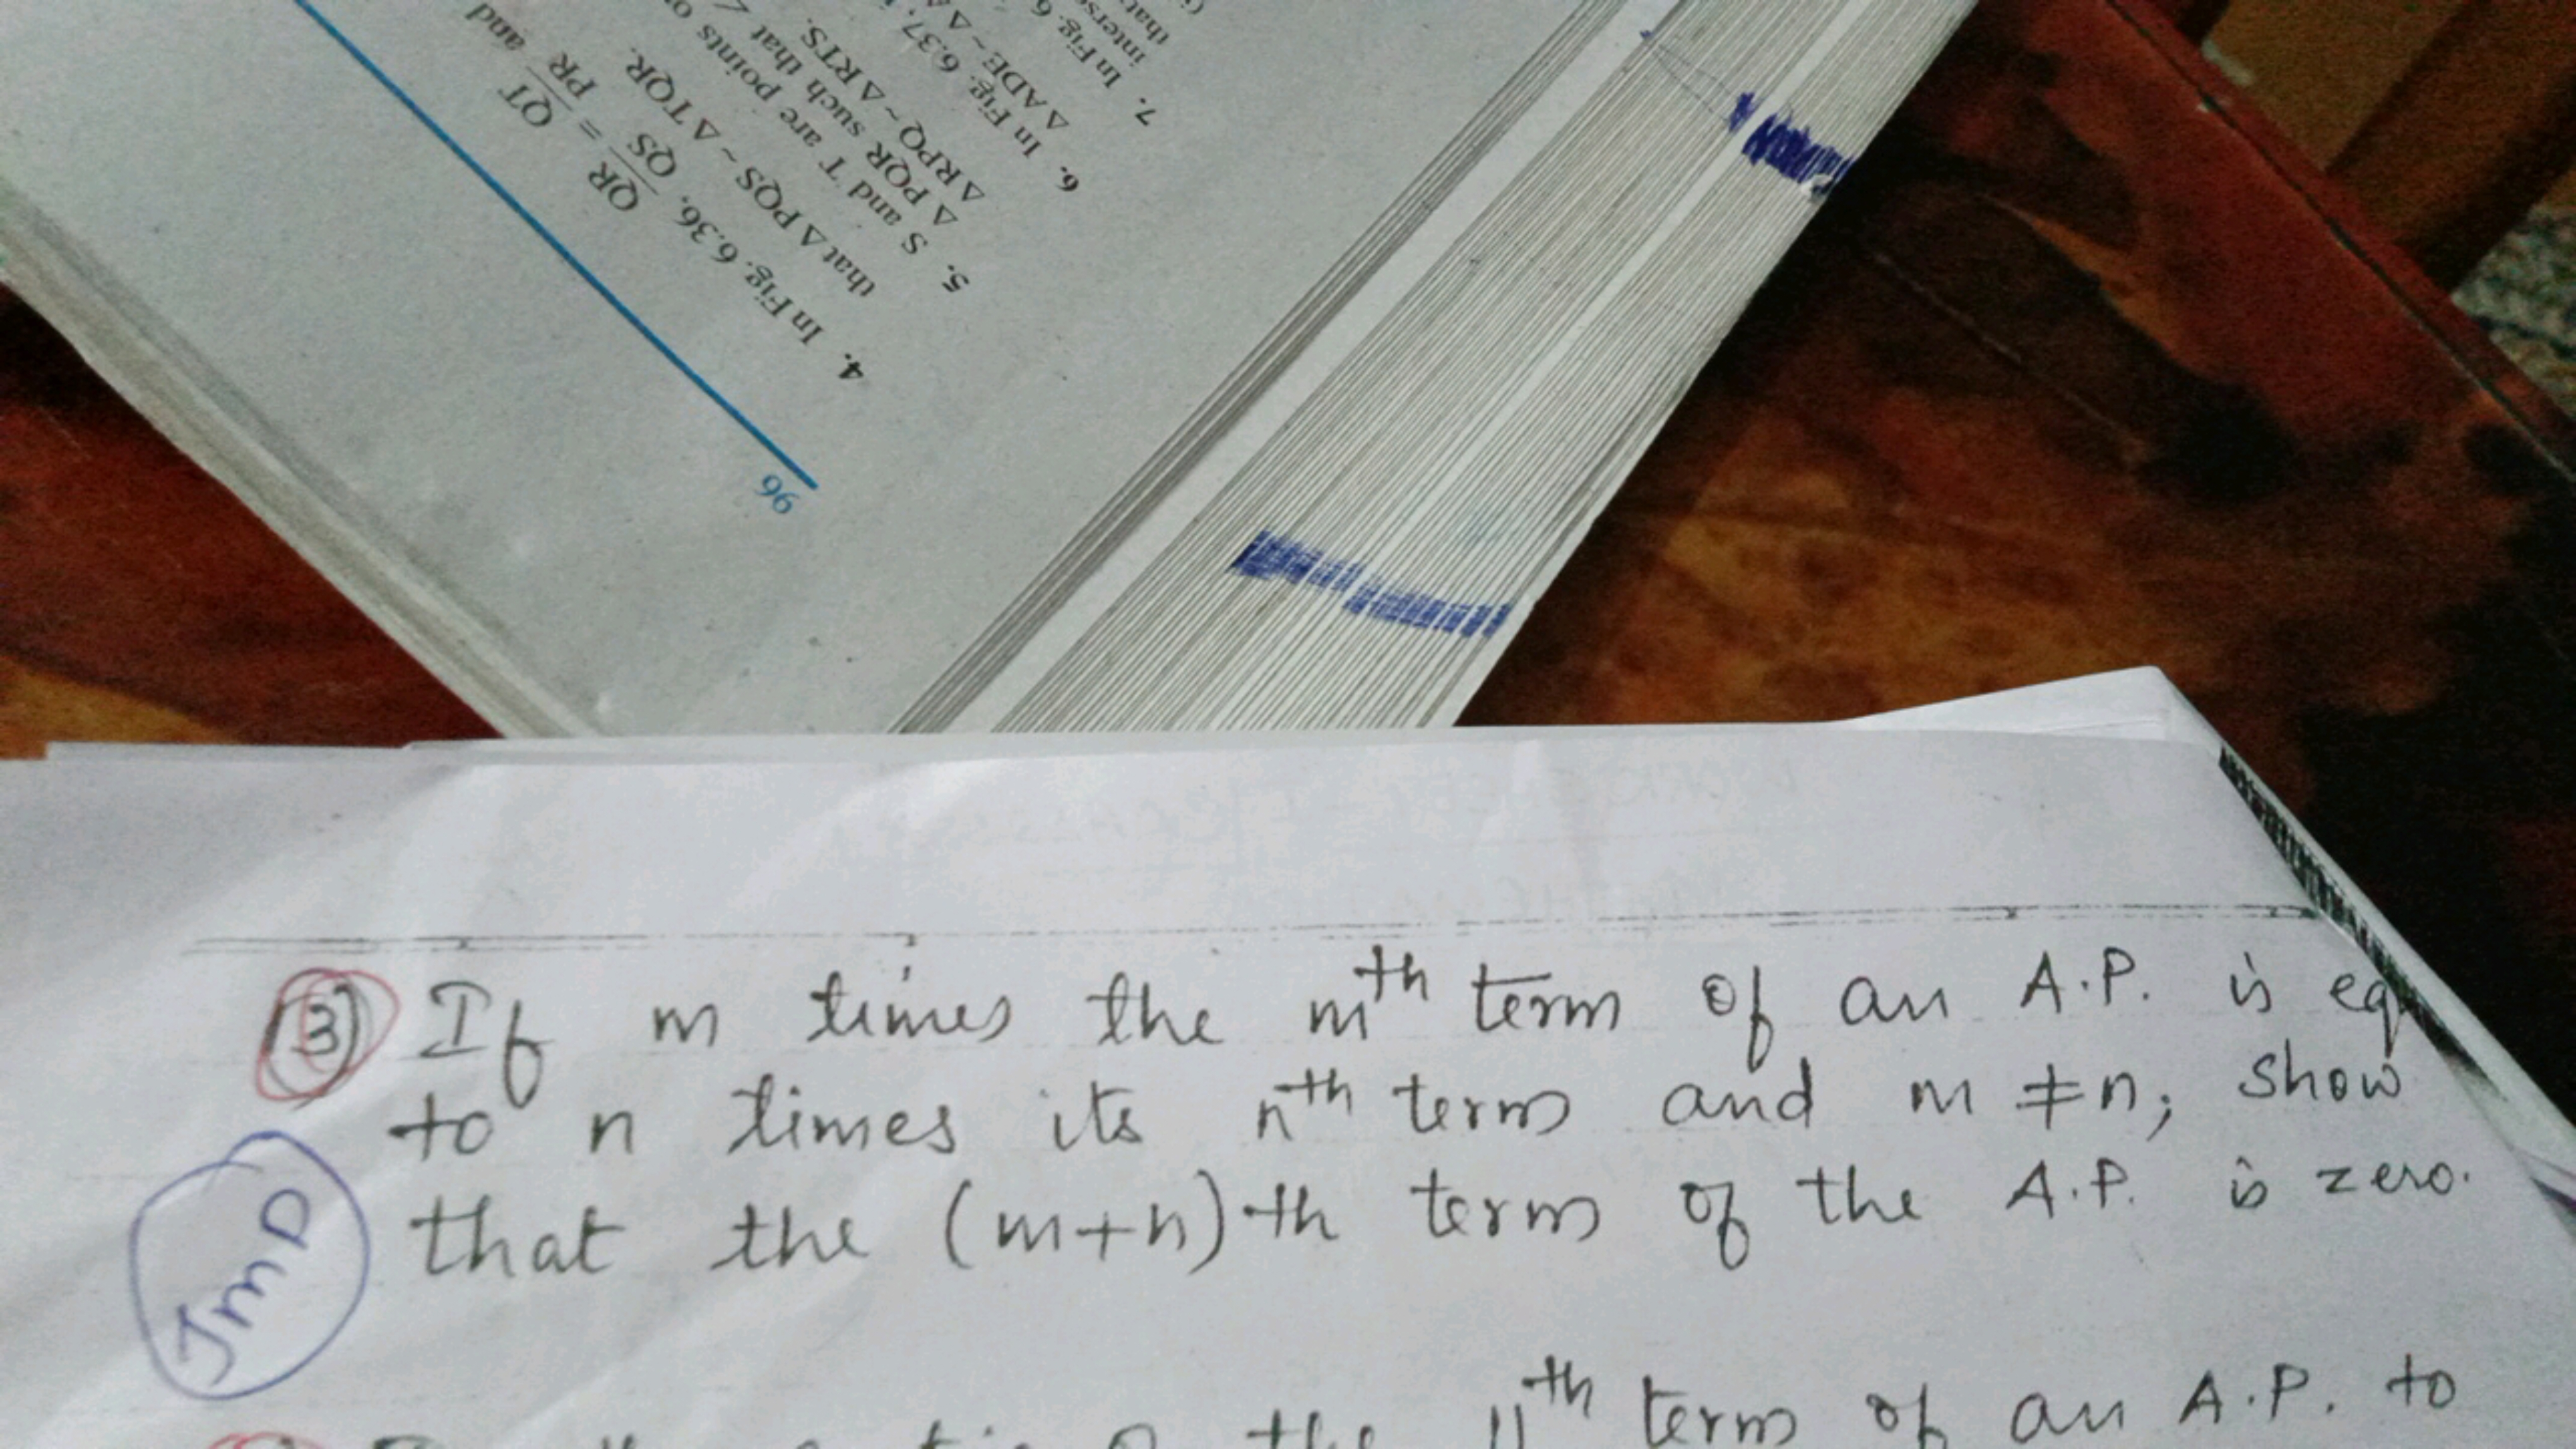 96
4. In Fig. 6.36, QR/QS = QT/PR and
that Δ PQS ~ Δ TQR.
5. S and T are points o
Δ PQR such that ∠
Δ RPQ ~ Δ RTS.
6. In Fig. 6.37,
Δ ADE ~ Δ A
7. In Fig. 6
interse
that
(3) If m times the mth term of an A.P. is eq
to n times its nth term and m ≠ n; show
that the (m+n)th term of the A.P. is zero.
JMD
the 11th term of an A.P. to